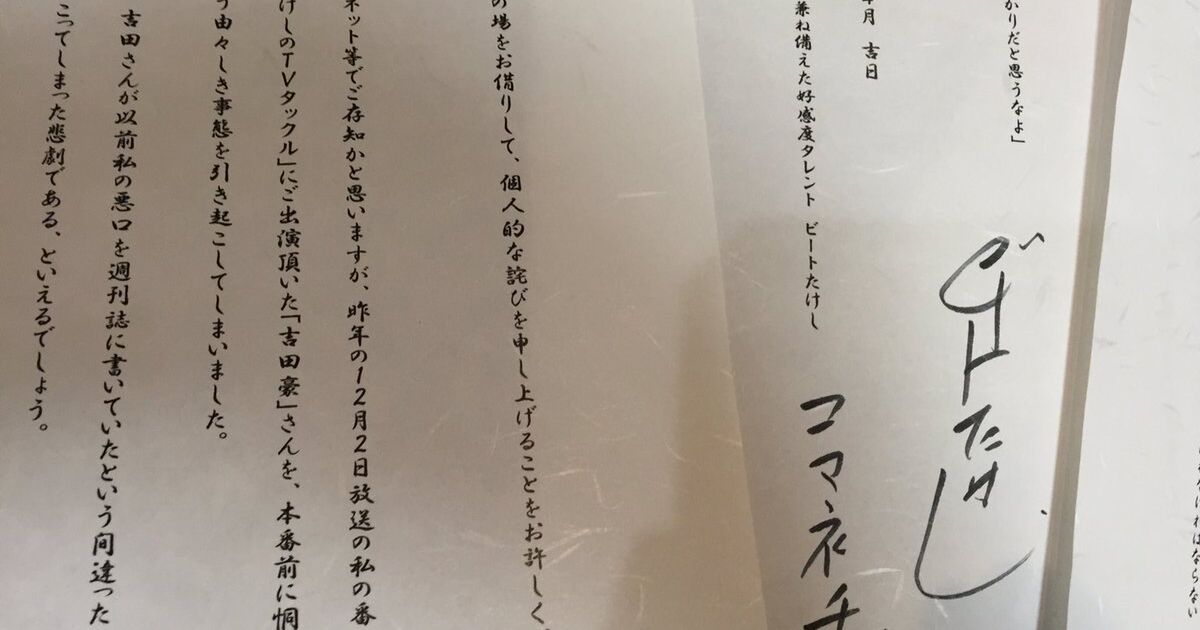 ければならない
かりだと思うなよ」
ビートたけし
月　吉日
兼ね備えた好感度タレント　ビートたけし
コマネチ
の場をお借りして、個人的な詫びを申し上げることをお許しく
ネット等でご存知かと思いますが、昨年の12月2日放送の私の番
けしのTVタックル」にご出演頂いた「吉田豪」さんを、本番前に恫
う由々しき事態を引き起こしてしまいました。
吉田さんが以前私の悪口を週刊誌に書いていたという間違った
こってしまった悲劇である、といえるでしょう。